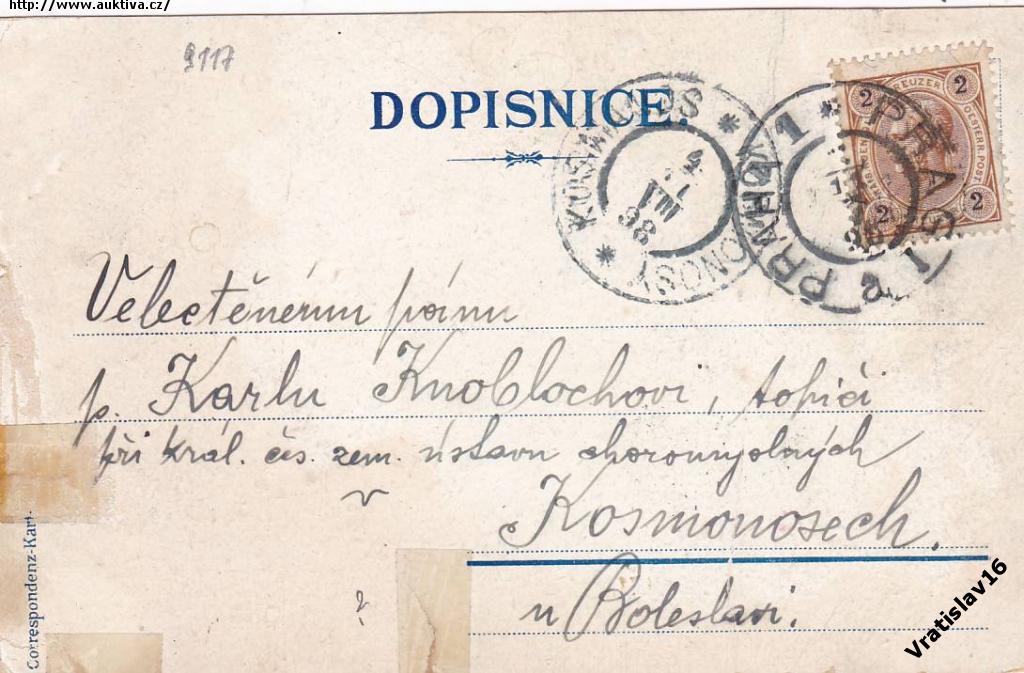 http://www.auktiva.cz/
9117
DOPISNICE.
KOSMONOS
9
VIII
98
KOSMONOSY
PRAG 1
PRAHA 1
2 KREUZER 2
OESTERR. POST
2 2
Velectěnému pánu
p. Karlu Knoblochovi, topiči
při král. čes. zem. ústavu choromyslných
v
Kosmonosech.
u Boleslavi.
Correspondenz-Kart
Vratislav16